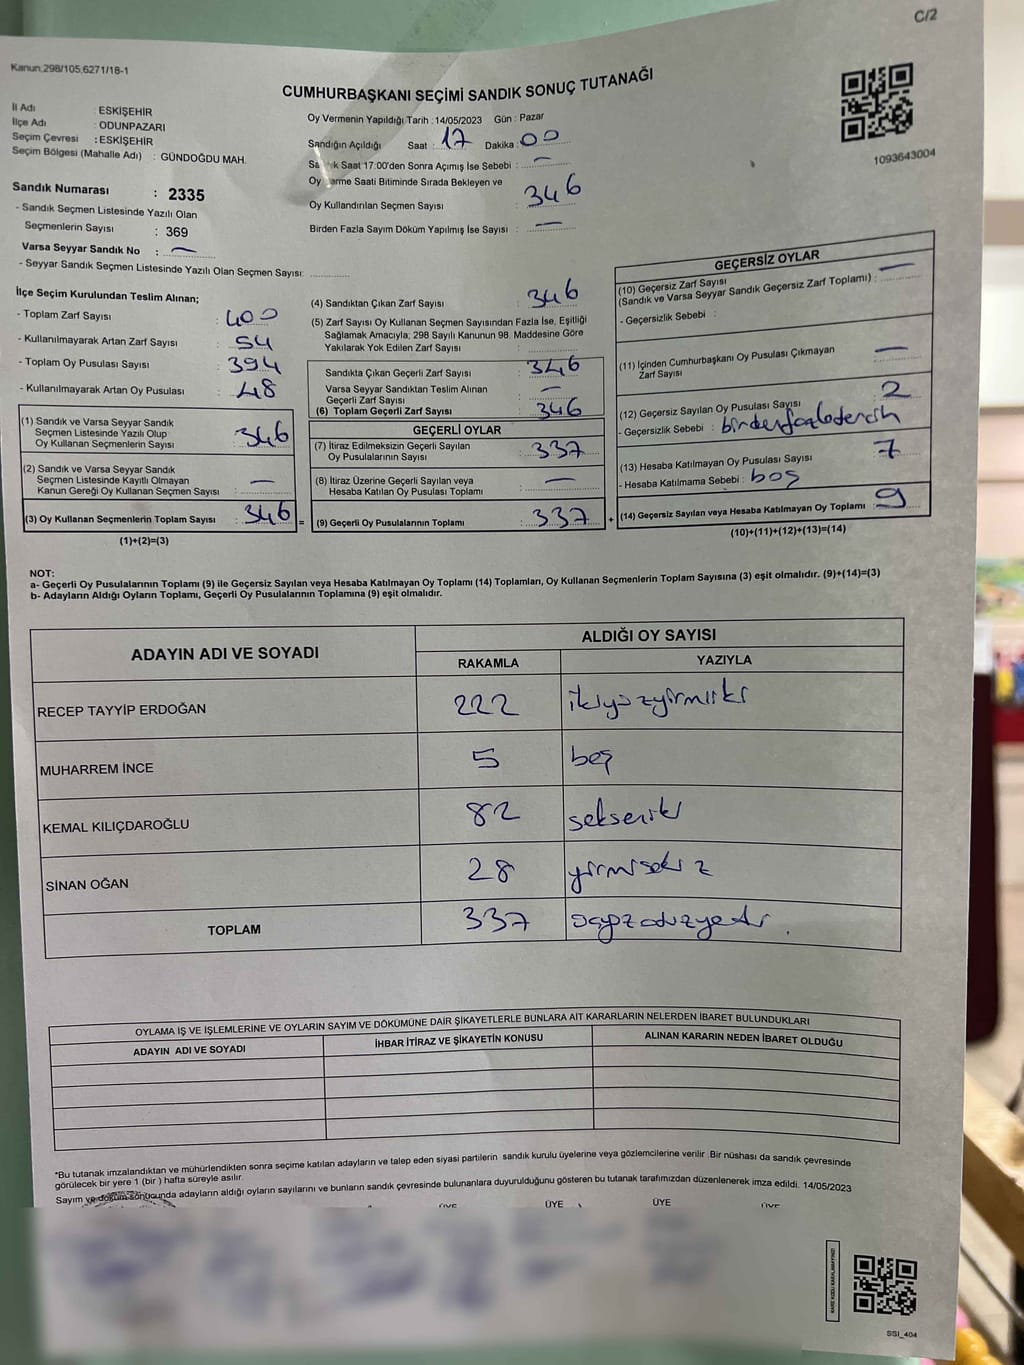 C/2
Kanun;298/105,6271/18-1
CUMHURBAŞKANI SEÇİMİ SANDIK SONUÇ TUTANAĞI
İl Adı : ESKİŞEHİR
İlçe Adı : ODUNPAZARI
Seçim Çevresi : ESKİŞEHİR
Seçim Bölgesi (Mahalle Adı) : GÜNDOĞDU MAH.
Sandık Numarası : 2335
- Sandık Seçmen Listesinde Yazılı Olan
Seçmenlerin Sayısı : 369
Varsa Seyyar Sandık No : —
- Seyyar Sandık Seçmen Listesinde Yazılı Olan Seçmen Sayısı:
Oy Vermenin Yapıldığı Tarih : 14/05/2023 Gün : Pazar
Sandığın Açıldığı Saat : 17 Dakika : 00
Saat 17:00'den Sonra Açımış İse Sebebi : —
Oy Verme Saati Bitiminde Sırada Bekleyen ve
Oy Kullandırılan Seçmen Sayısı : 346
Birden Fazla Sayım Döküm Yapılmış İse Sayısı : —
1093643004
İlçe Seçim Kurulundan Teslim Alınan;
- Toplam Zarf Sayısı : 400
- Kullanılmayarak Artan Zarf Sayısı : 54
- Toplam Oy Pusulası Sayısı : 394
- Kullanılmayarak Artan Oy Pusulası : 48
(1) Sandık ve Varsa Seyyar Sandık
Seçmen Listesinde Yazılı Olup
Oy Kullanan Seçmenlerin Sayısı : 346
(2) Sandık ve Varsa Seyyar Sandık
Seçmen Listesinde Kayıtlı Olmayan
Kanun Gereği Oy Kullanan Seçmen Sayısı : —
(3) Oy Kullanan Seçmenlerin Toplam Sayısı : 346
(1)+(2)=(3)
(4) Sandıktan Çıkan Zarf Sayısı : 346
(5) Zarf Sayısı Oy Kullanan Seçmen Sayısından Fazla İse, Eşitliği
Sağlamak Amacıyla; 298 Sayılı Kanunun 98. Maddesine Göre
Yakılarak Yok Edilen Zarf Sayısı :
Sandıkta Çıkan Geçerli Zarf Sayısı : 346
Varsa Seyyar Sandıktan Teslim Alınan
Geçerli Zarf Sayısı : —
(6) Toplam Geçerli Zarf Sayısı : 346
GEÇERLİ OYLAR
(7) İtiraz Edilmeksizin Geçerli Sayılan
Oy Pusulalarının Sayısı : 337
(8) İtiraz Üzerine Geçerli Sayılan veya
Hesaba Katılan Oy Pusulası Toplamı : —
= (9) Geçerli Oy Pusulalarının Toplamı : 337 +
GEÇERSİZ OYLAR
(10) Geçersiz Zarf Sayısı
(Sandık ve Varsa Seyyar Sandık Geçersiz Zarf Toplamı) : —
- Geçersizlik Sebebi :
(11) İçinden Cumhurbaşkanı Oy Pusulası Çıkmayan
Zarf Sayısı : —
(12) Geçersiz Sayılan Oy Pusulası Sayısı : 2
- Geçersizlik Sebebi : birdenfazlatercih
(13) Hesaba Katılmayan Oy Pusulası Sayısı : 7
- Hesaba Katılmama Sebebi : boş
(14) Geçersiz Sayılan veya Hesaba Katılmayan Oy Toplamı : 9
(10)+(11)+(12)+(13)=(14)
NOT:
a- Geçerli Oy Pusulalarının Toplamı (9) ile Geçersiz Sayılan veya Hesaba Katılmayan Oy Toplamı (14) Toplamları, Oy Kullanan Seçmenlerin Toplam Sayısına (3) eşit olmalıdır. (9)+(14)=(3)
b- Adayların Aldığı Oyların Toplamı, Geçerli Oy Pusulalarının Toplamına (9) eşit olmalıdır.
ADAYIN ADI VE SOYADI ALDIĞI OY SAYISI
RAKAMLA YAZIYLA
RECEP TAYYİP ERDOĞAN 222 ikiyüzyirmiiki
MUHARREM İNCE 5 beş
KEMAL KILIÇDAROĞLU 82 sekseniki
SİNAN OĞAN 28 yirmisekiz
TOPLAM 337 üçyüzotuzyedi.
OYLAMA İŞ VE İŞLEMLERİNE VE OYLARIN SAYIM VE DÖKÜMÜNE DAİR ŞİKAYETLERLE BUNLARA AİT KARARLARIN NELERDEN İBARET BULUNDUKLARI
ADAYIN ADI VE SOYADI İHBAR İTİRAZ VE ŞİKAYETİN KONUSU ALINAN KARARIN NEDEN İBARET OLDUĞU
*Bu tutanak imzalandıktan ve mühürlendikten sonra seçime katılan adayların ve talep eden siyasi partilerin sandık kurulu üyelerine veya gözlemcilerine verilir. Bir nüshası da sandık çevresinde
görülecek bir yere 1 (bir ) hafta süreyle asılır.
Sayım ve döküm sonucunda adayların aldığı oyların sayılarını ve bunların sandık çevresinde bulunanlara duyurulduğunu gösteren bu tutanak tarafımızdan düzenlenerek imza edildi. 14/05/2023
ÜYE ÜYE ÜYE ÜYE
KARE KODU KARALAMAYINIZ!
SSI_404